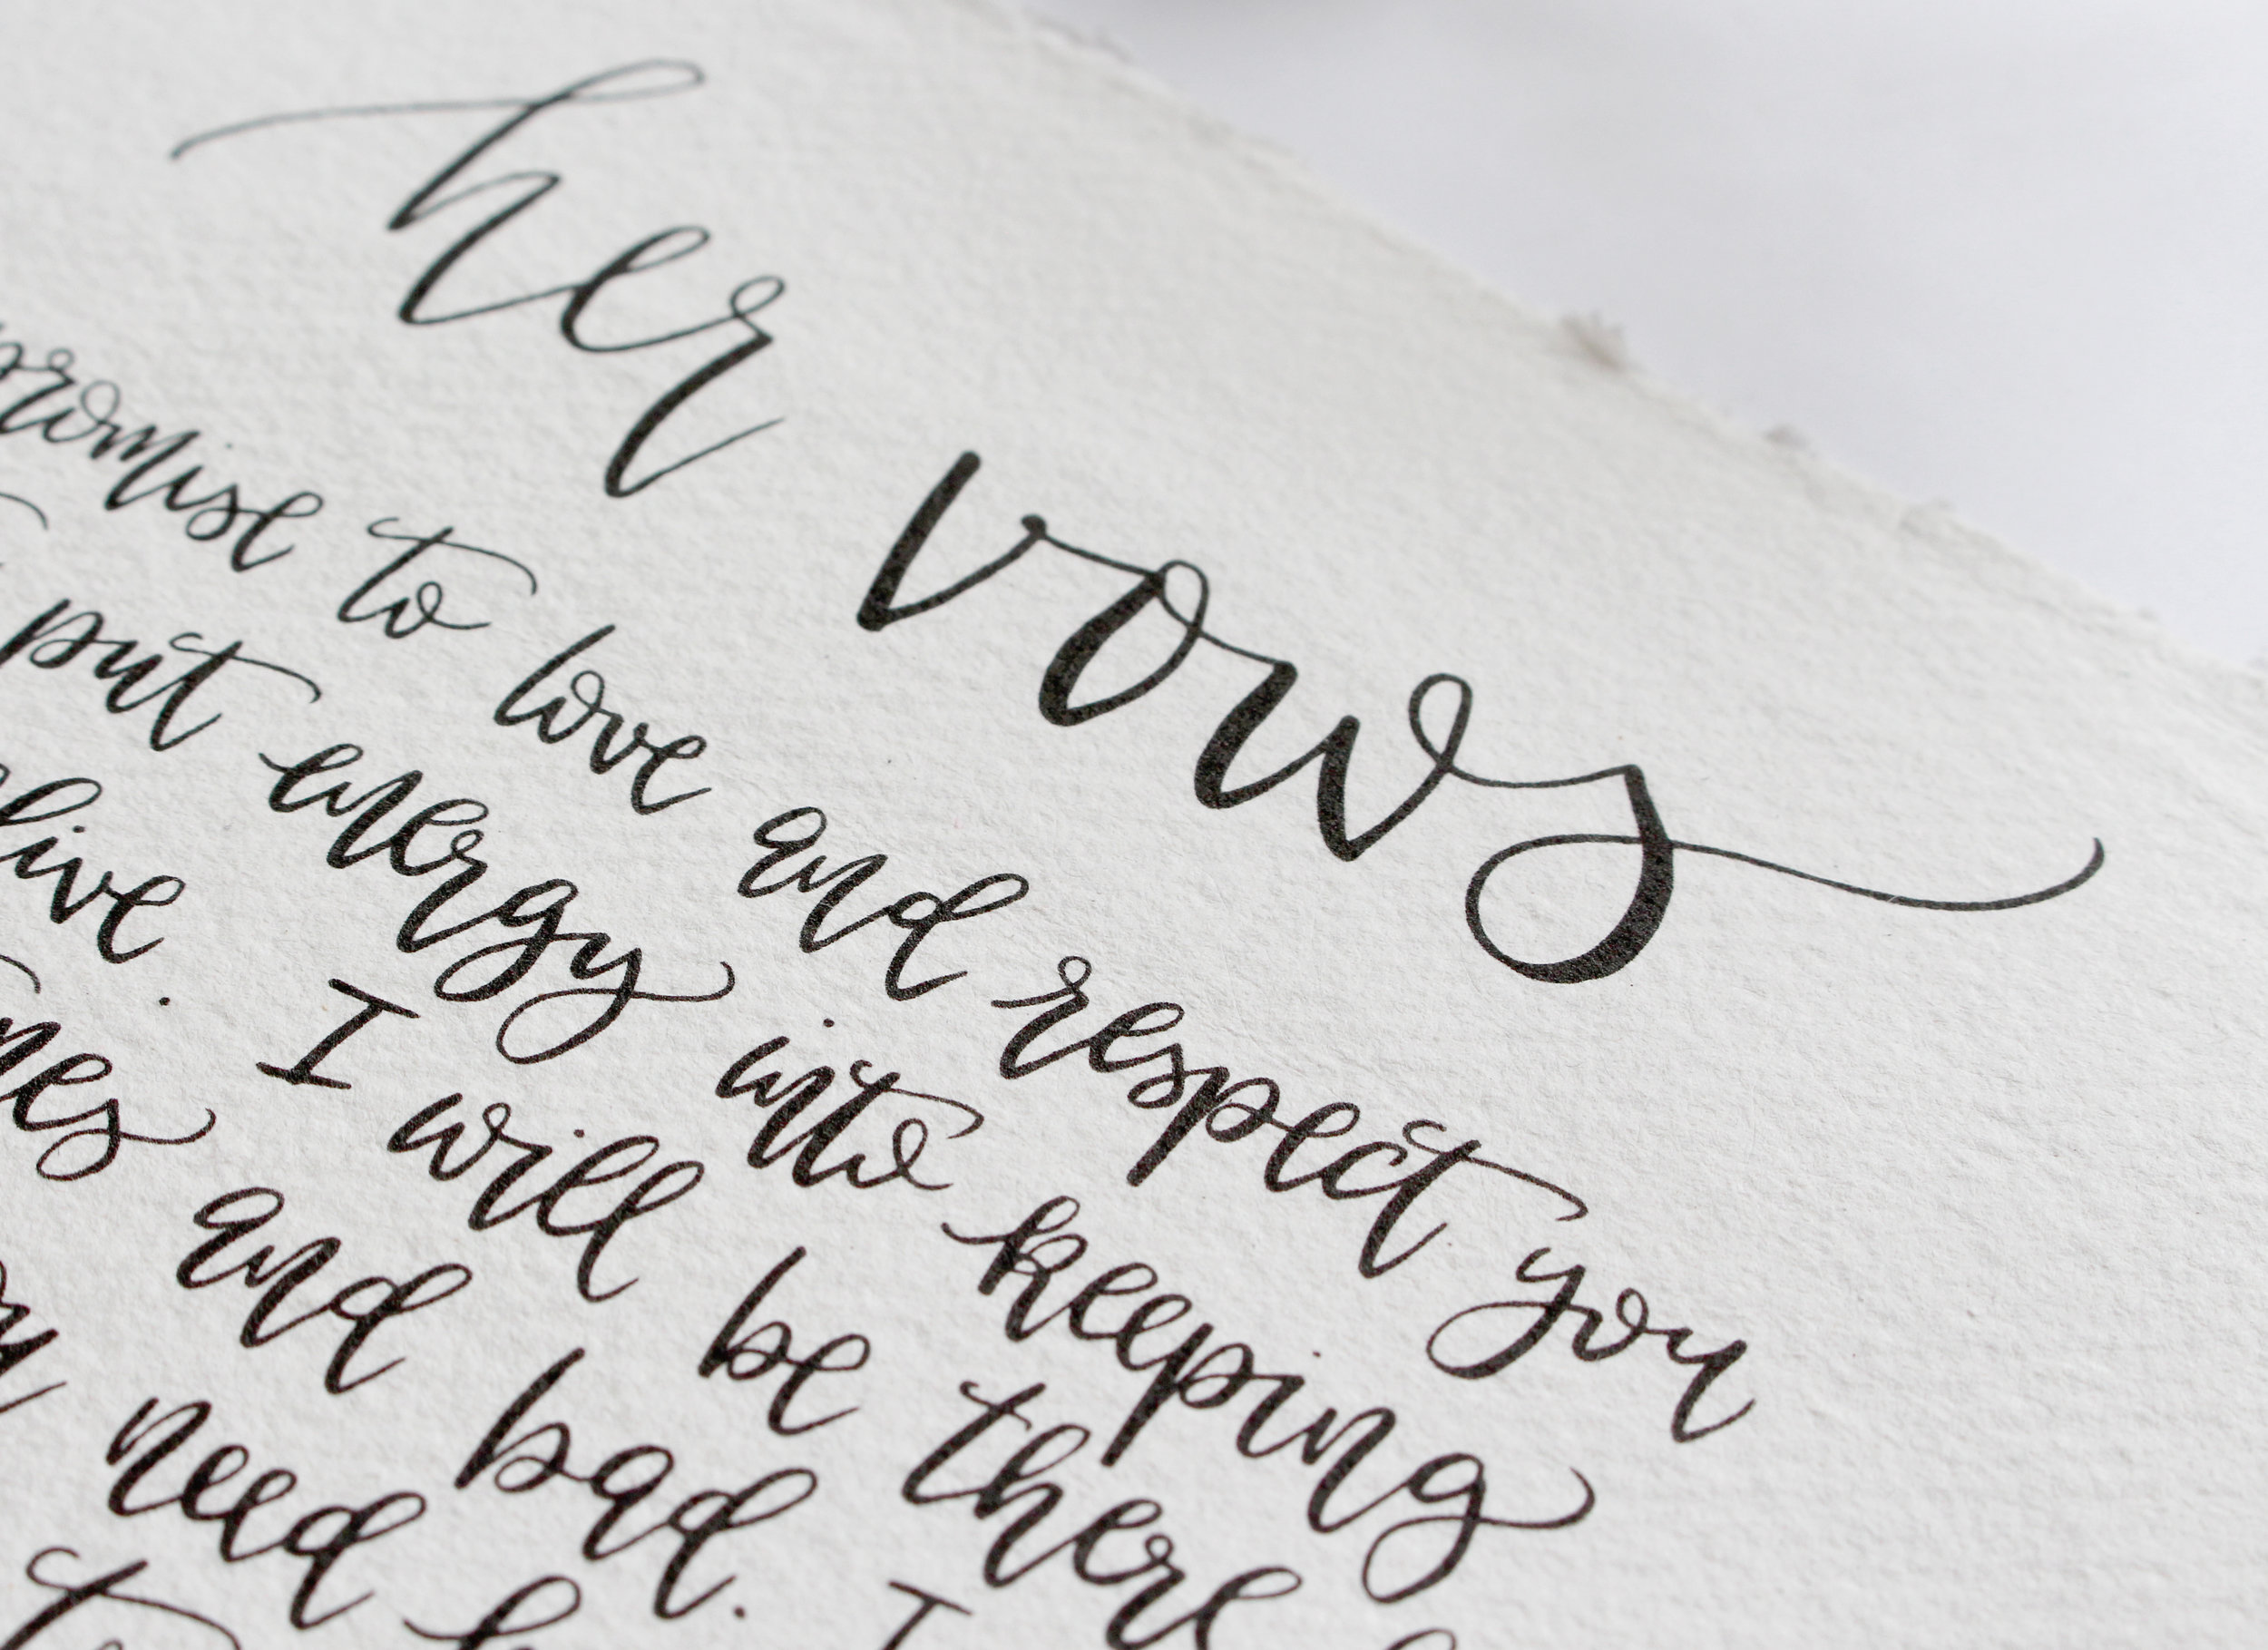 her vows
promise to love and respect you
put energy into keeping
live. I will be there
and bad. I
need